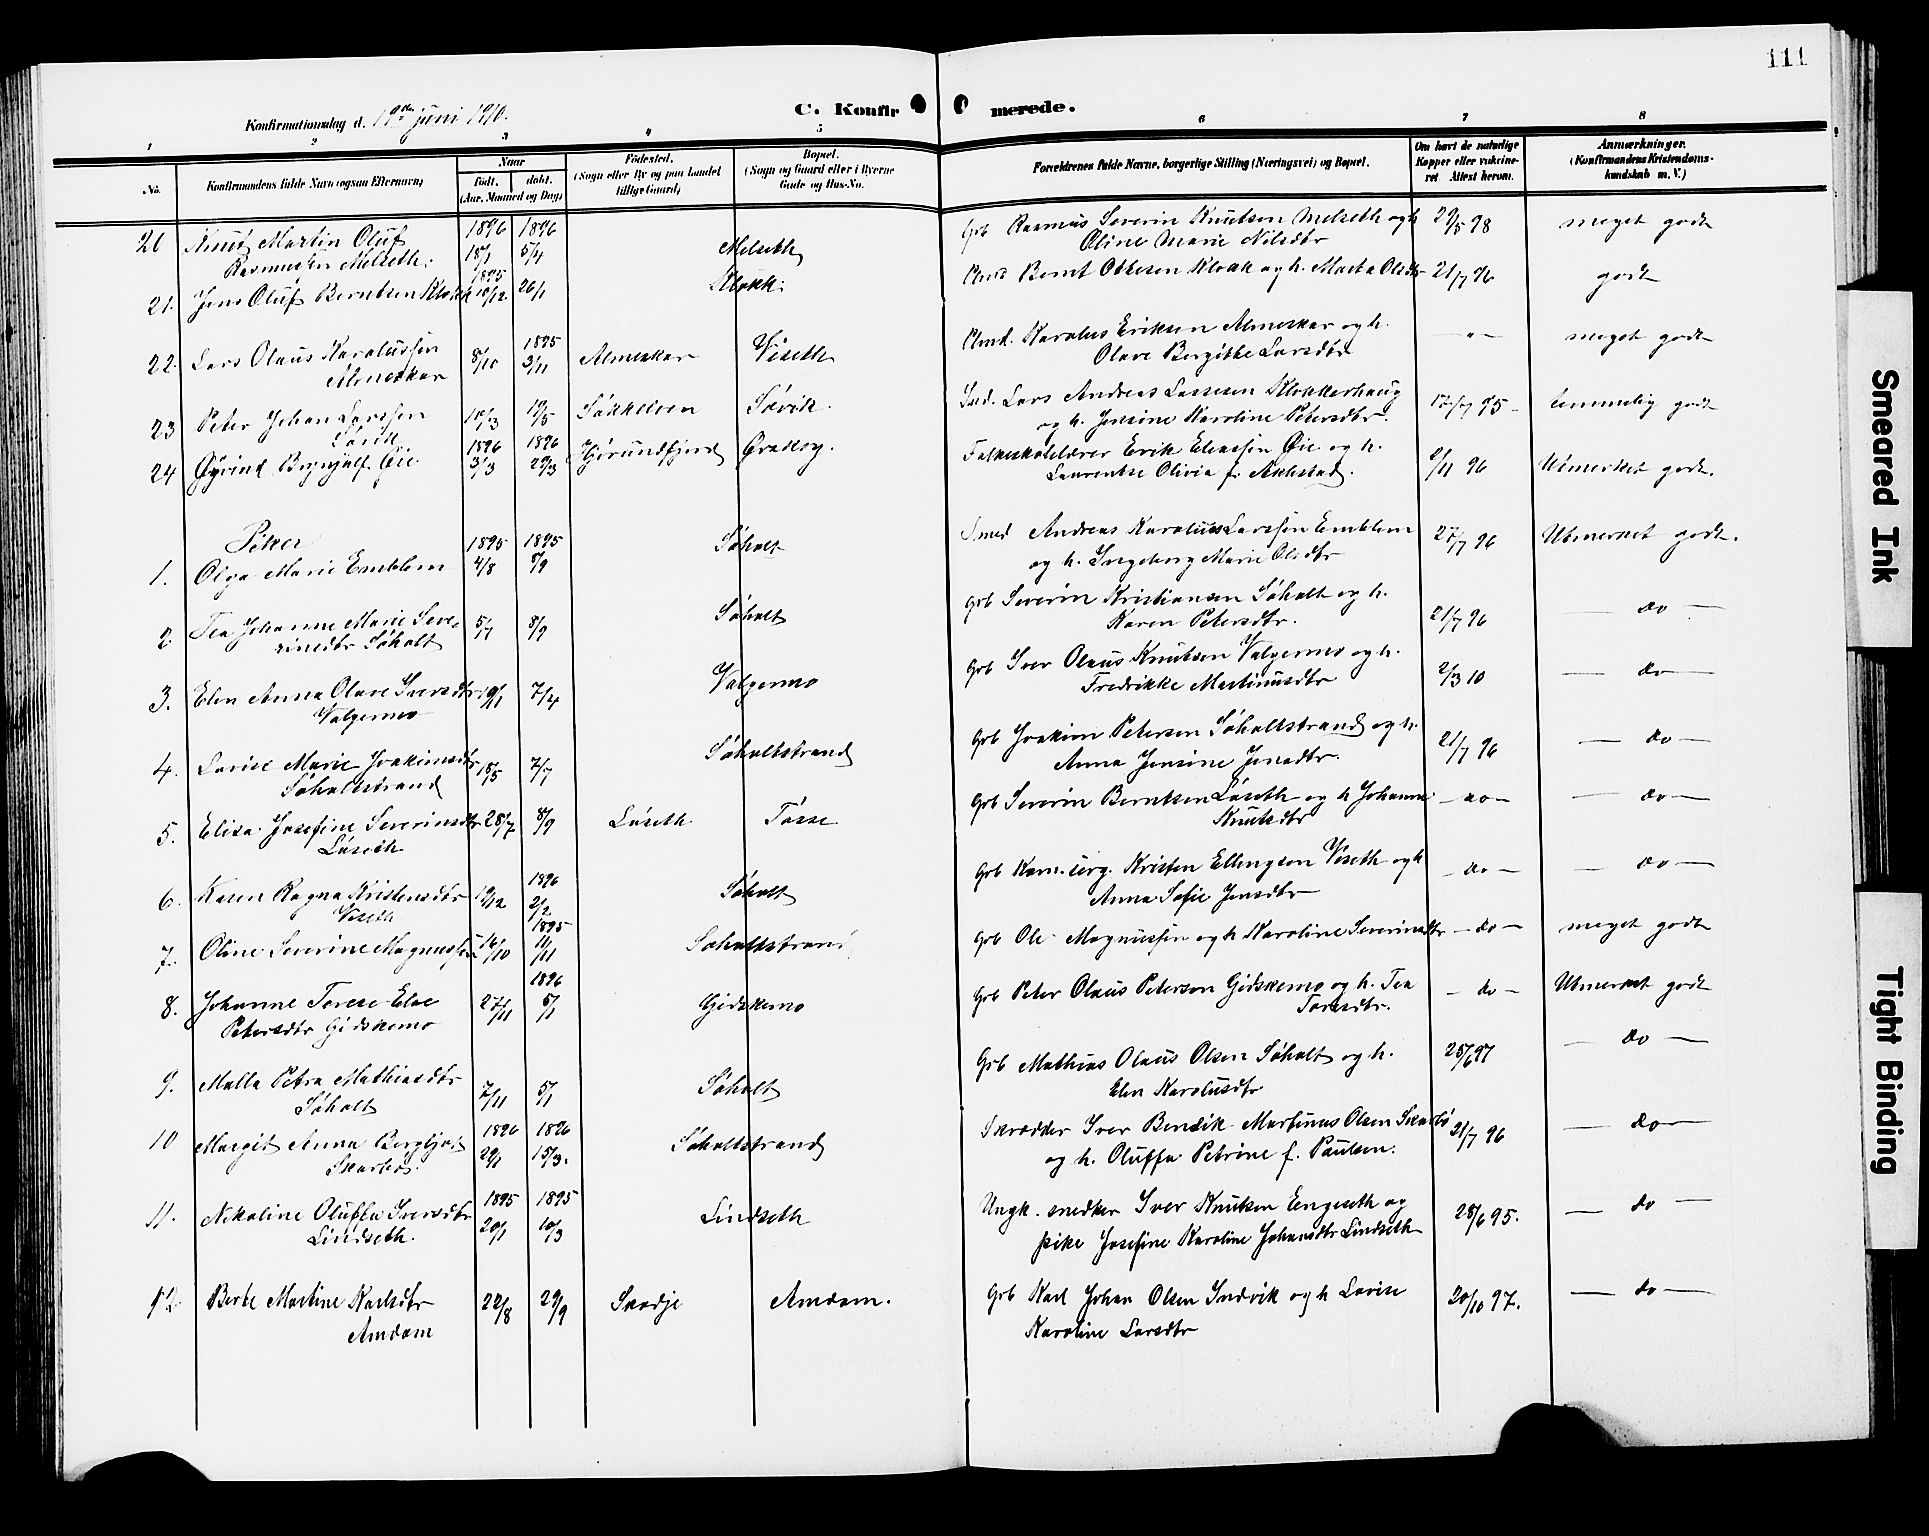 111
Konfirmationsdag d. 19de juni 1910.
C. Konfir merede.
1 2 3 4 5 6 7 8
No.
Konfirmandens fulde Navn (ogsaa Efternavn)
Naar
født. døbt.
(Aar, Maaned og Dag)
Fødested.
(Sogn eller By og paa Landet
tillige Gaard)
Bopæl.
(Sogn og Gaard eller i Byerne
Gade og Hus-No.
Forældrenes fulde Navne, borgerlige Stilling (Næringsvei) og Bopæl.
Om havt de naturlige
Kopper eller vakcine-
ret Attest herom.
Anmærkninger.
(Konfirmandens Kristendoms-
kundskab m. V.)
20 Knut Martin Oluf 1896 18/1 1896 5/4 Melseth Grb Rasmus Severin Knutsen Melseth og h 29/5 98 meget godt
Rasmussen Melseth. Oline Marie Nilsdtr
21. Jens Oluf Berntsen Klokk 1895 10/12 26/1 Klokk. Gmd Bernt Ottesen Klokk og h. Marta Olsdtr 21/7 96 godt
22. Lars Olaus Karolussen 8/10 1895 3/11 Almeskar Viseth Gmd. Karolus Eriksen Almeskar og h. — " — meget godt
Almeskar Olave Bergitte Larsdtr
23 Peter Johan Larssen 10/3 19/5 Søkkelven Søvik. Ind. Lars Andreas Lassesen Klokkerhaug 17/7 95 temmelig godt
Søvik og h. Jensine Karoline Petersdtr.
24 Øyvind Brynjulf Øie. 1896 3/3 1896 29/3 Hjørundfjord Folkeskolelærer Erik Eliassen Øie og h. 9/11 96 Utmerket godt.
Laurentse Olivia f. Aklestad.
Piker
1. Olga Marie Emblem 1895 4/8 1895 8/9 Søholt Smed Andreas Karolus Larssen Emblem 27/7 96 Utmerket godt.
og h. Ingeborg Marie Olsdtr
2. Tea Johanne Marie Seve- 5/7 8/9 Søholt Grb Severin Kristiansen Søholt og h. 21/7 96 — do —
rinsdtr Søholt Karen Petersdtr.
3. Elen Anna Olave Iversdtr 19/1 7/4 Valgermo Grb Iver Olaus Knutsen Valgermo og h. 2/3 10 — do —
Valgermo Fredrikke Martinusdtr
4. Lovise Marie Joakimsdtr 18/5 7/7 Søholtstrand Grb Joakim Petersen Søholtstrand og h. 21/7 96 — do —
Søholtstrand Anna Jensine Jensdtr.
5. Elisa Josefine Severinsdtr 28/7 8/9 Løseth Tøsse Grb Severin Berntsen Løseth og h Johanne — do — — do —
Løseth Knutsdtr
6. Karen Ragna Kristensdtr 19/12 1896 2/2 Søholt Grb Kom. Kristen Ellingsen Viseth og h — do — — do —
Viseth Anna Sofie Jensdtr
7. Oline Severine Magnussen 16/10 1895 11/11 Søholtstrand Grb Ole Magnussen og h Karoline Severinsdtr — do — meget godt
8. Johanne Terese Elve 27/11 1896 5/1 Gidskemo Grb Peter Olaus Petersen Gidskemo og h. Tea — do — Utmerket godt
Petersdtr Gidskemo Toresdtr.
9. Malla Petra Mathiasdtr 7/11 5/1 Søholt Grb Mathias Olaus Olsen Søholt og h. 25/6 97 — do —
Søholt Elen Karolusdtr
10 Margit Anna Bergljot 1896 29/1 1896 15/3. Søholtstrand Skrædder Iver Bendik Martinus Olsen Skarbø 21/7 96 — do —
Skarbø. og h. Oluffa Petrine f. Paulsen.
11. Nikoline Oluffa Iversdtr 1895 20/1 1895 10/3 Lindseth Ungk. snedker Iver Knutsen Engeseth og 28/6 95. — do —
Lindseth. pike Josefine Karoline Johansdtr Lindseth
12 Berte Martine Karlsdtr 22/8 29/9 Skodje Amdam. Grb Karl Johan Olsen Indvik og h Lovise 20/10 97. — do —
Amdam Karoline Larsdtr
Smeared Ink
Tight Binding